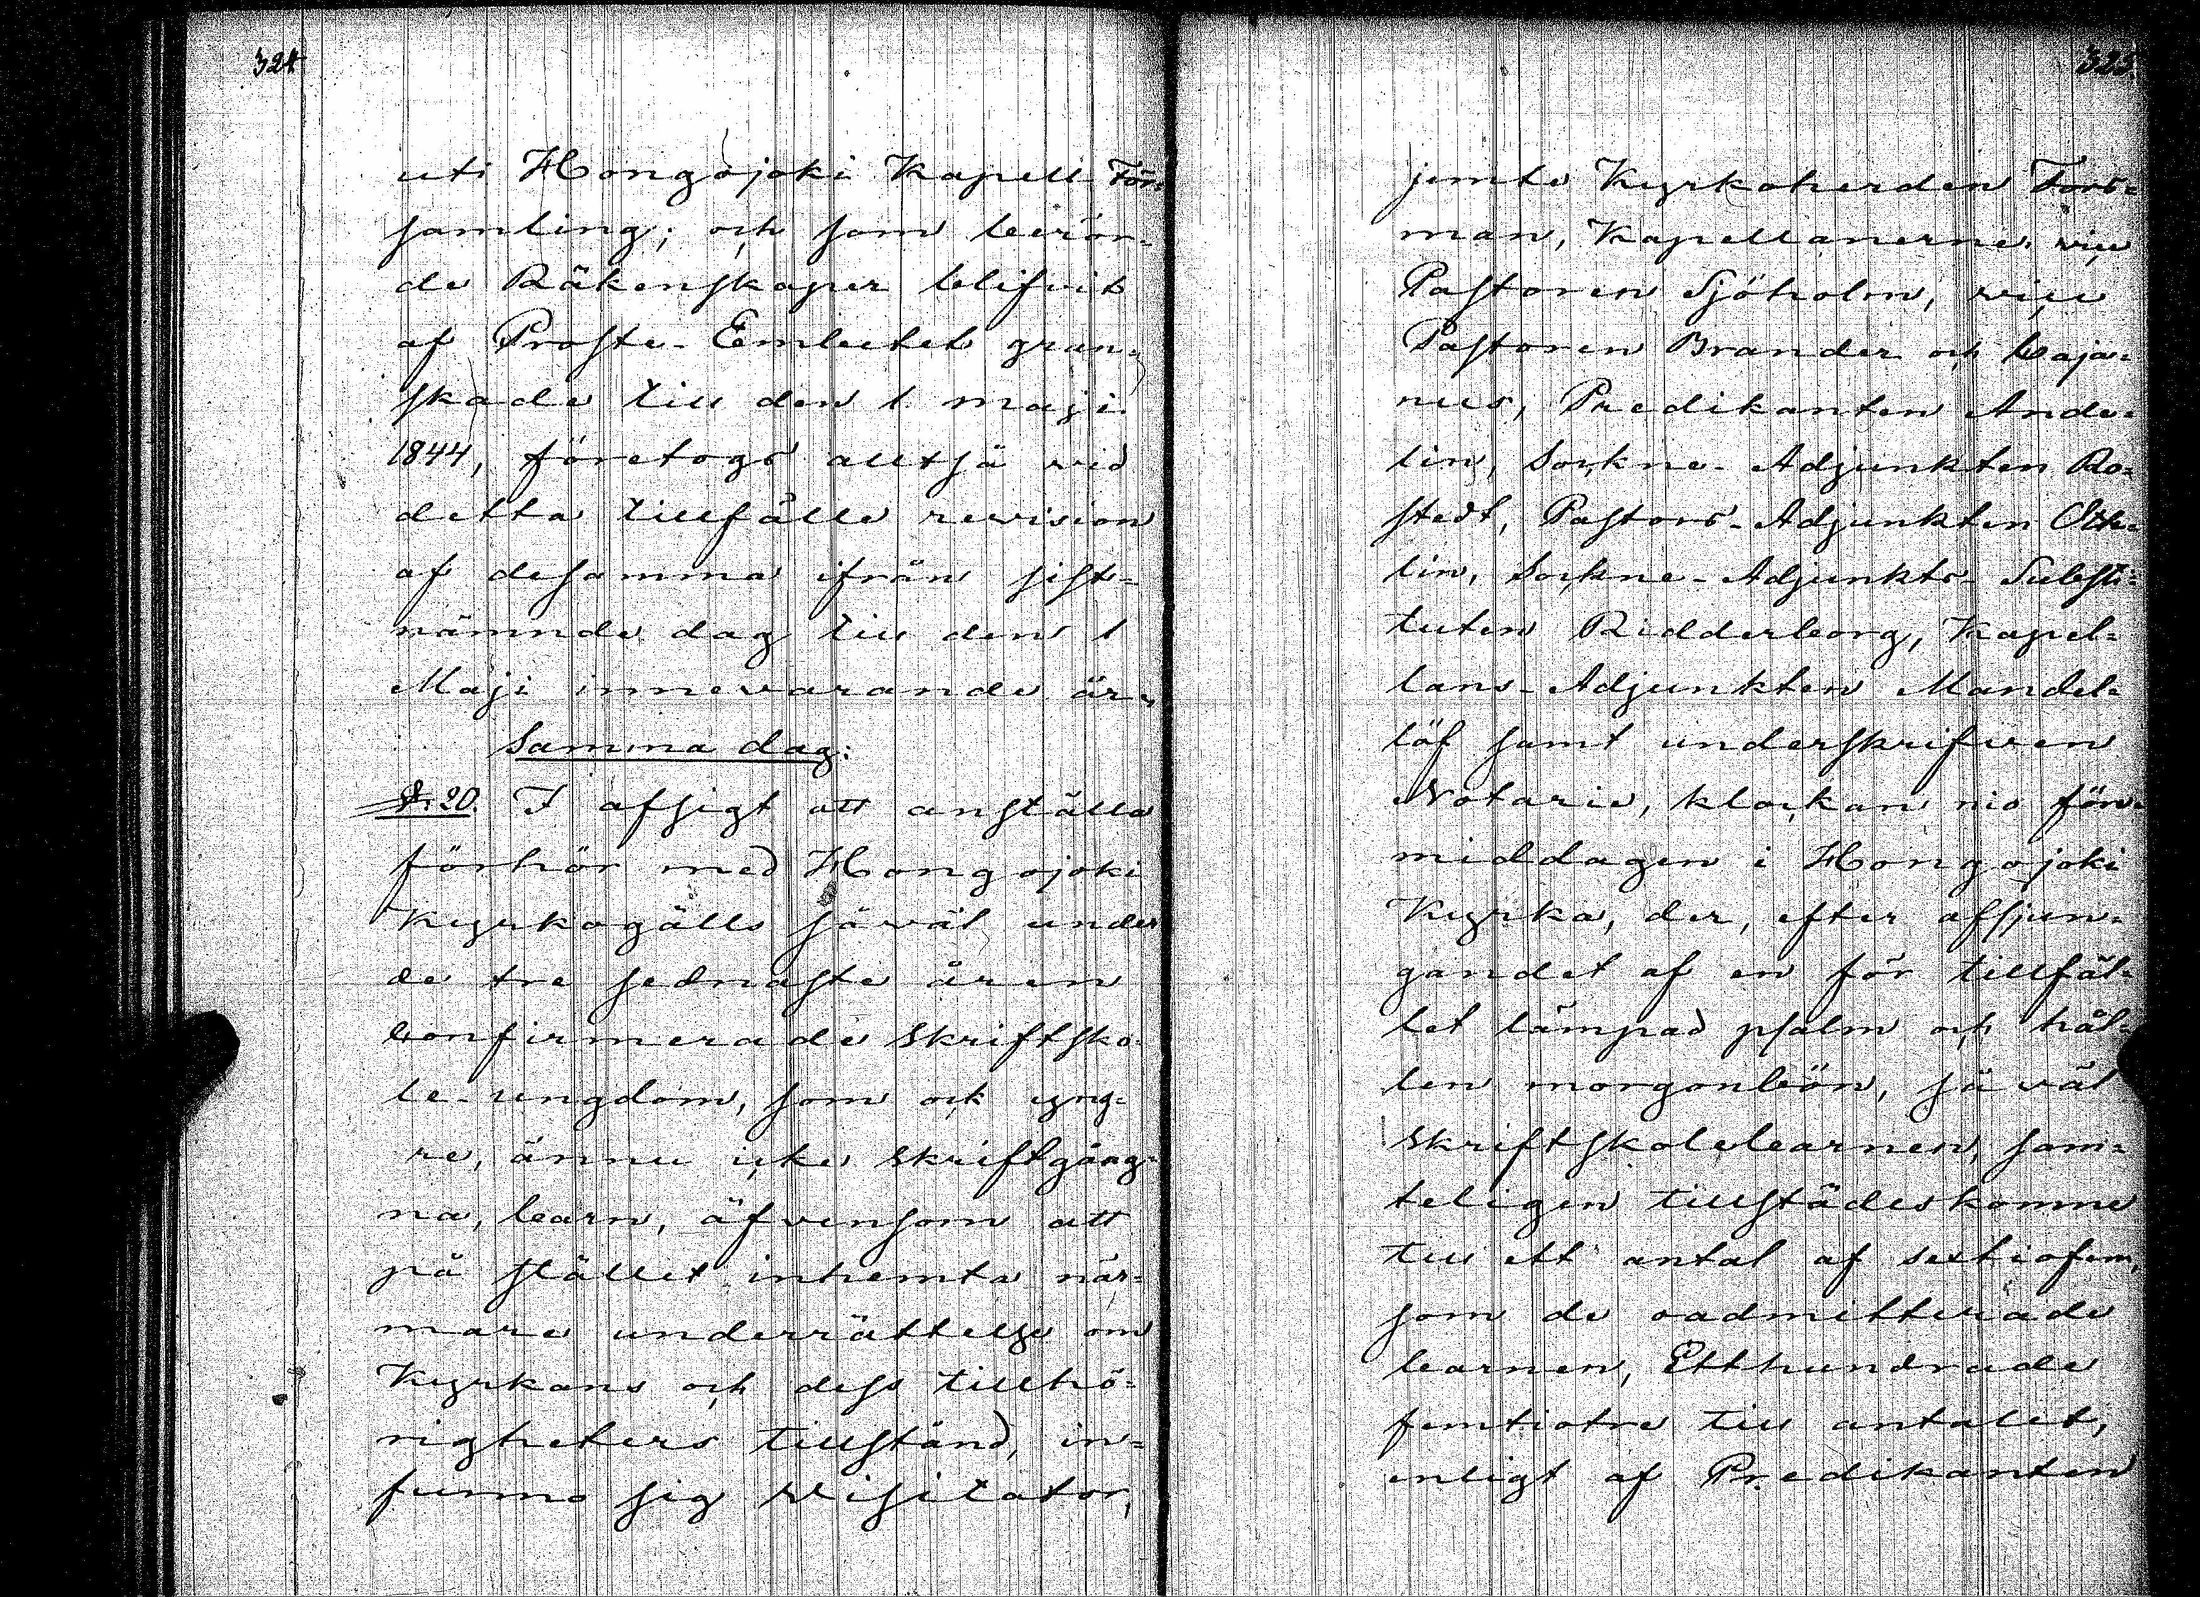 324
uti Hongojoki Kapell För-
samling; och som berör-
de Räkenskaper blifvit
af Proste-Embetet gran-
skade till den 1 maji
1844, företogs alltså vid
detta tillfälle revision
af desamma ifrån sist-
nämnde dag till den 1
Maji innevarande år.
Samma dag:
§. 20. I afsigt att anställa
förhör med Hongojoki
Kyrkogälls såväl under
de tre sednaste åren
confirmerade skriftsko-
le-ungdom, som ock yng-
re, ännu icke skriftgång-
na, barn, äfvensom att
på stället inhemta när-
mare underrättelse om
Kyrkans och dess tillhö-
righeters tillstånd, in-
funno sig Visitator,
325.
jemte Kyrkoherden Fors-
man, Kapellanerne, vice
Pastoren Sjöholm, vice
Pastoren Brander och Caja-
nus, Predikanten Ande-
lin, Sockne-Adjunkten Ro-
stedt, Pastors-Adjunkten
lin, Sockne-Adjunkts-Substi-
tuten Ridderborg, Kapel-
lans-Adjunkten Mandel-
löf samt underskrifven
Notarie, klockan nio för-
middagen i Hongojoki
Kyrka, der, efter afsjun-
gandet af en för tillfäl-
let lämpad psalm och hål-
len morgonbön, så väl
skriftskolebarnen, sam-
teligen tillstädeskomne
till ett antal af sextiofem,
som de oadmitterade
barnen, Etthundrade
femtiotre till antalet,
enligt af Predikanten